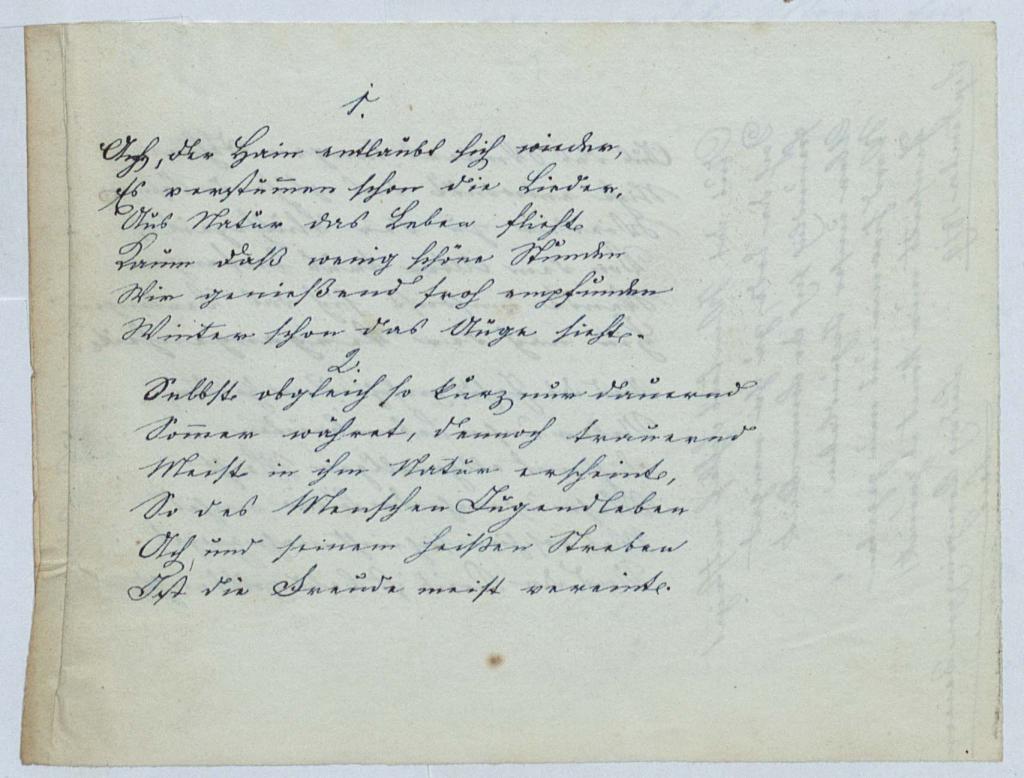 1.
Ach, der Hain entlaubt sich wieder,
Es verstum̄en schon die Lieder,
Aus Natur das Leben flieht.
Kaum daß wenig schöne Stunden
Wir genießend froh empfunden
Winter schon das Auge sieht.
2.
Selbst obgleich so kurz nur dauernd
Som̄er währet, dennoch trauernd
Meist in ihm Natur erscheint,
So des Menschen Jugendleben
Ach, und seinem heißen Streben
Ist die Freude meist vereint.